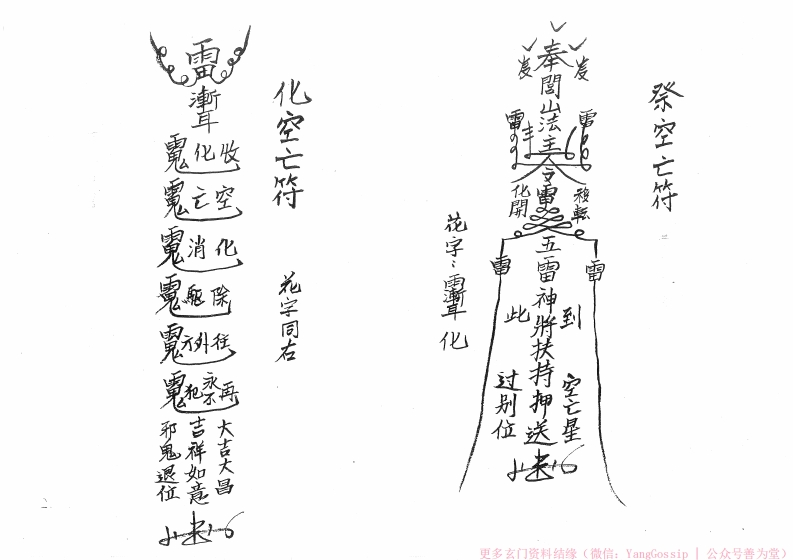 祭空亡符
奉
閭山法主
发
发
雷
雷
令雷
化開
移転
雷
雷
五雷神將扶持押送
此
到
过别位
空亡星
花字：雷漸耳 化
化空亡符
花字同右
雷
漸耳
收化
空亡
化消
除驱
往外方
再永不犯
大吉大昌
吉祥如意
邪鬼退位
更多玄门资料结缘（微信：YangGossip | 公众号善为堂）